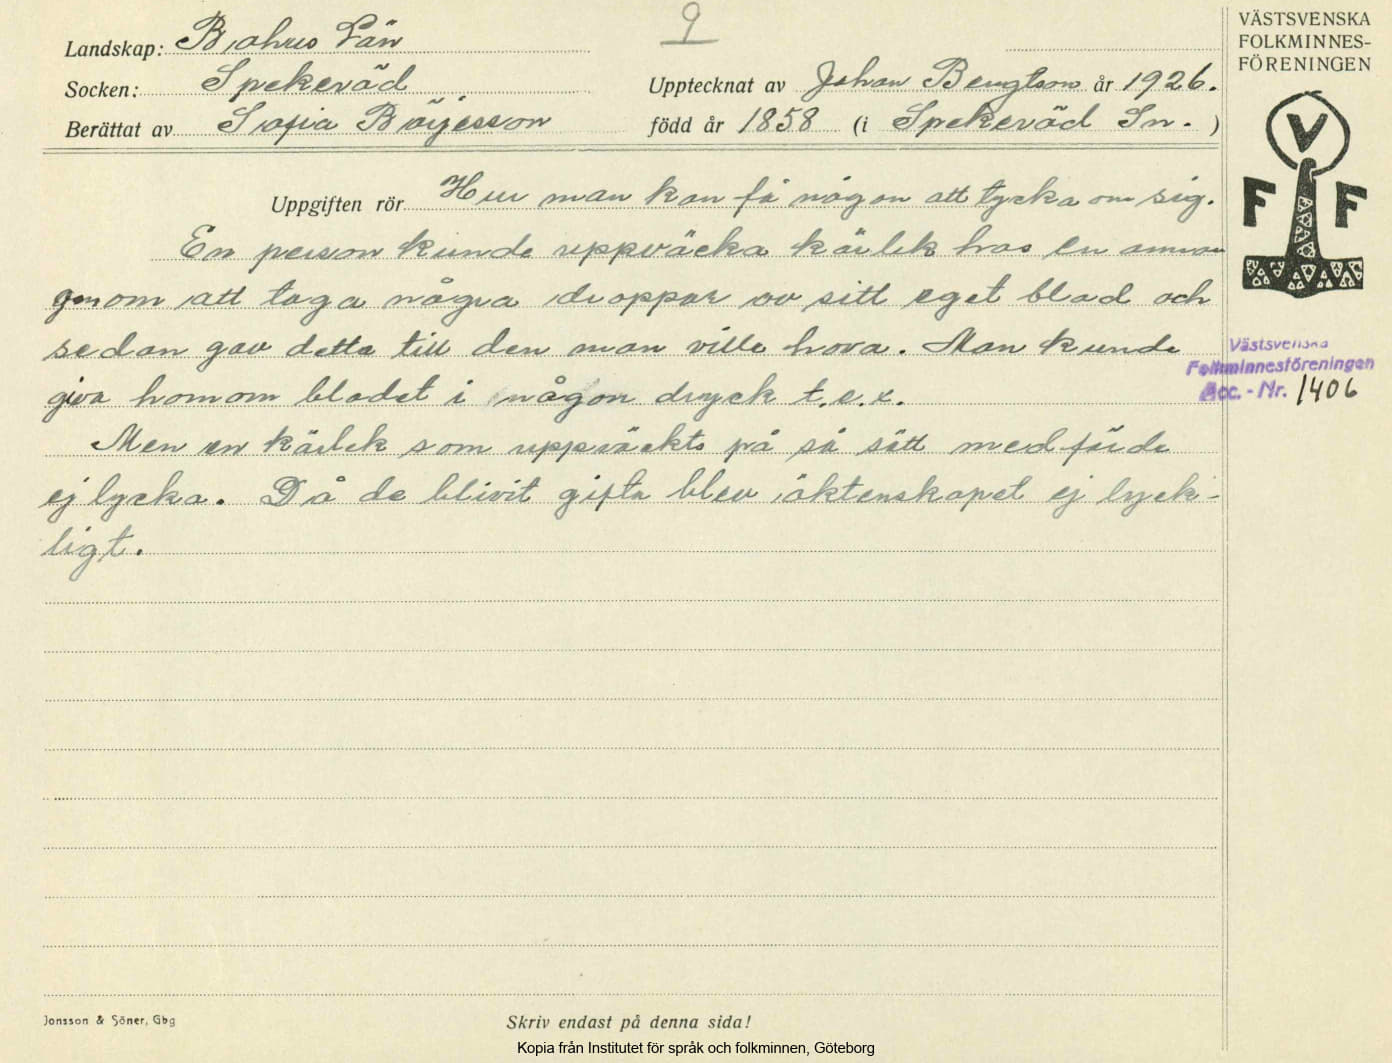 9
VÄSTSVENSKA
FOLKMINNES-
FÖRENINGEN
Landskap: Bohus Län
Socken: Spekeröd
Upptecknat av Johan Bengtson år 1926.
Berättat av Sofia Börjesson
född år 1858 (i Spekeröd Sn. )
V
F F
Uppgiften rör Hur man kan få någon att tycka om sig.
En person kunde uppväcka kärlek hos en annan
genom att taga några droppar av sitt eget blod och
sedan gav detta till den man ville hava. Man kunde
giva honom blodet i någon dryck t.e.x.
Men en kärlek som uppväckts på så sätt medförde
ej lycka. Då de blivit gifta blev äktenskapet ej lyck-
ligt.
Västsvenska
Folkminnesföreningen
Acc.-Nr. 1406
Jonsson & Söner, Gbg
Skriv endast på denna sida!
Kopia från Institutet för språk och folkminnen, Göteborg